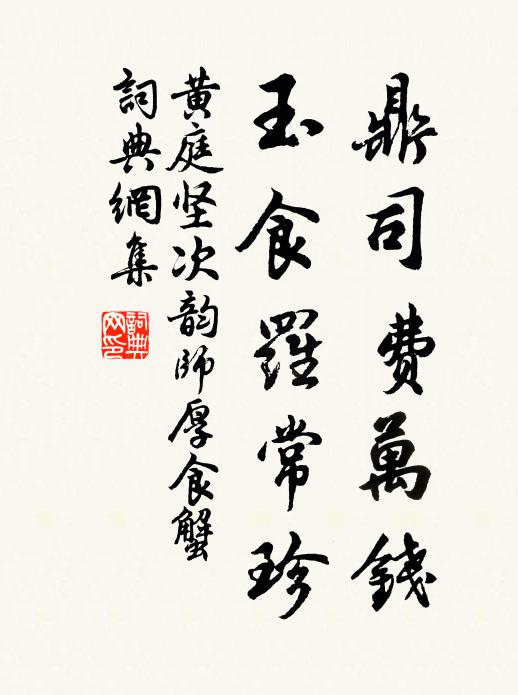 鼎司費萬錢
玉食羅常珍
黄庭坚次韵師厚食蟹
詞典網集
詞典网印